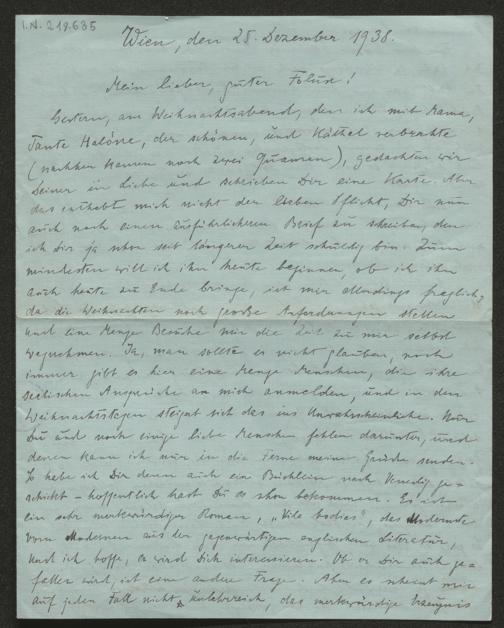 I.N. 218.635
Wien, den 25. Dezember 1938.
Mein lieber, guter Foluse!
Gestern, am Weihnachtsabend, den ich mit Mama,
Tante Helöne, der schönen, und Käthel verbrachte
(nachher kamen noch zwei), gedachten wir
Deiner in Liebe und schrieben Dir eine Karte. Aber
das enthebt mich nicht der lieben Pflicht, Dir nun
auch noch einen ausführlicheren Brief zu schreiben, den
ich Dir ja schon seit längerer Zeit schuldig bin. Zum
mindesten will ich ihn heute beginnen, ob ich ihn
auch heute zu Ende bringe, ist mir allerdings fraglich,
da die Weihnachten noch große Anforderungen stellen
und eine Menge Besuche mir die Zeit zu mir selbst
wegnehmen. Ja, man sollte es nicht glauben, noch
immer gibt es hier eine Menge Menschen, die ihre
seelischen Ansprüche an mich anmelden, und in den
Weihnachtstagen steigert sich das ins Unwahrscheinliche. Nur
Du und noch einige liebe Menschen fehlen darunter, und
denen kann ich nur in die Ferne meine Grüße senden.
So habe ich Dir denn auch ein Büchlein nach Venedig ge-
schickt – hoffentlich hast Du es schon bekommen. Es ist
ein sehr merkwürdiger Roman, „Vile bodies", das Modernste
vom Modernen aus der gegenwärtigen englischen Literatur,
und ich hoffe, es wird Dich interessieren. Ob er Dir auch ge-
fallen wird, ist eine andere Frage. Aber es scheint mir
auf jeden Fall nicht unlehrreich, das merkwürdige Erzeugnis